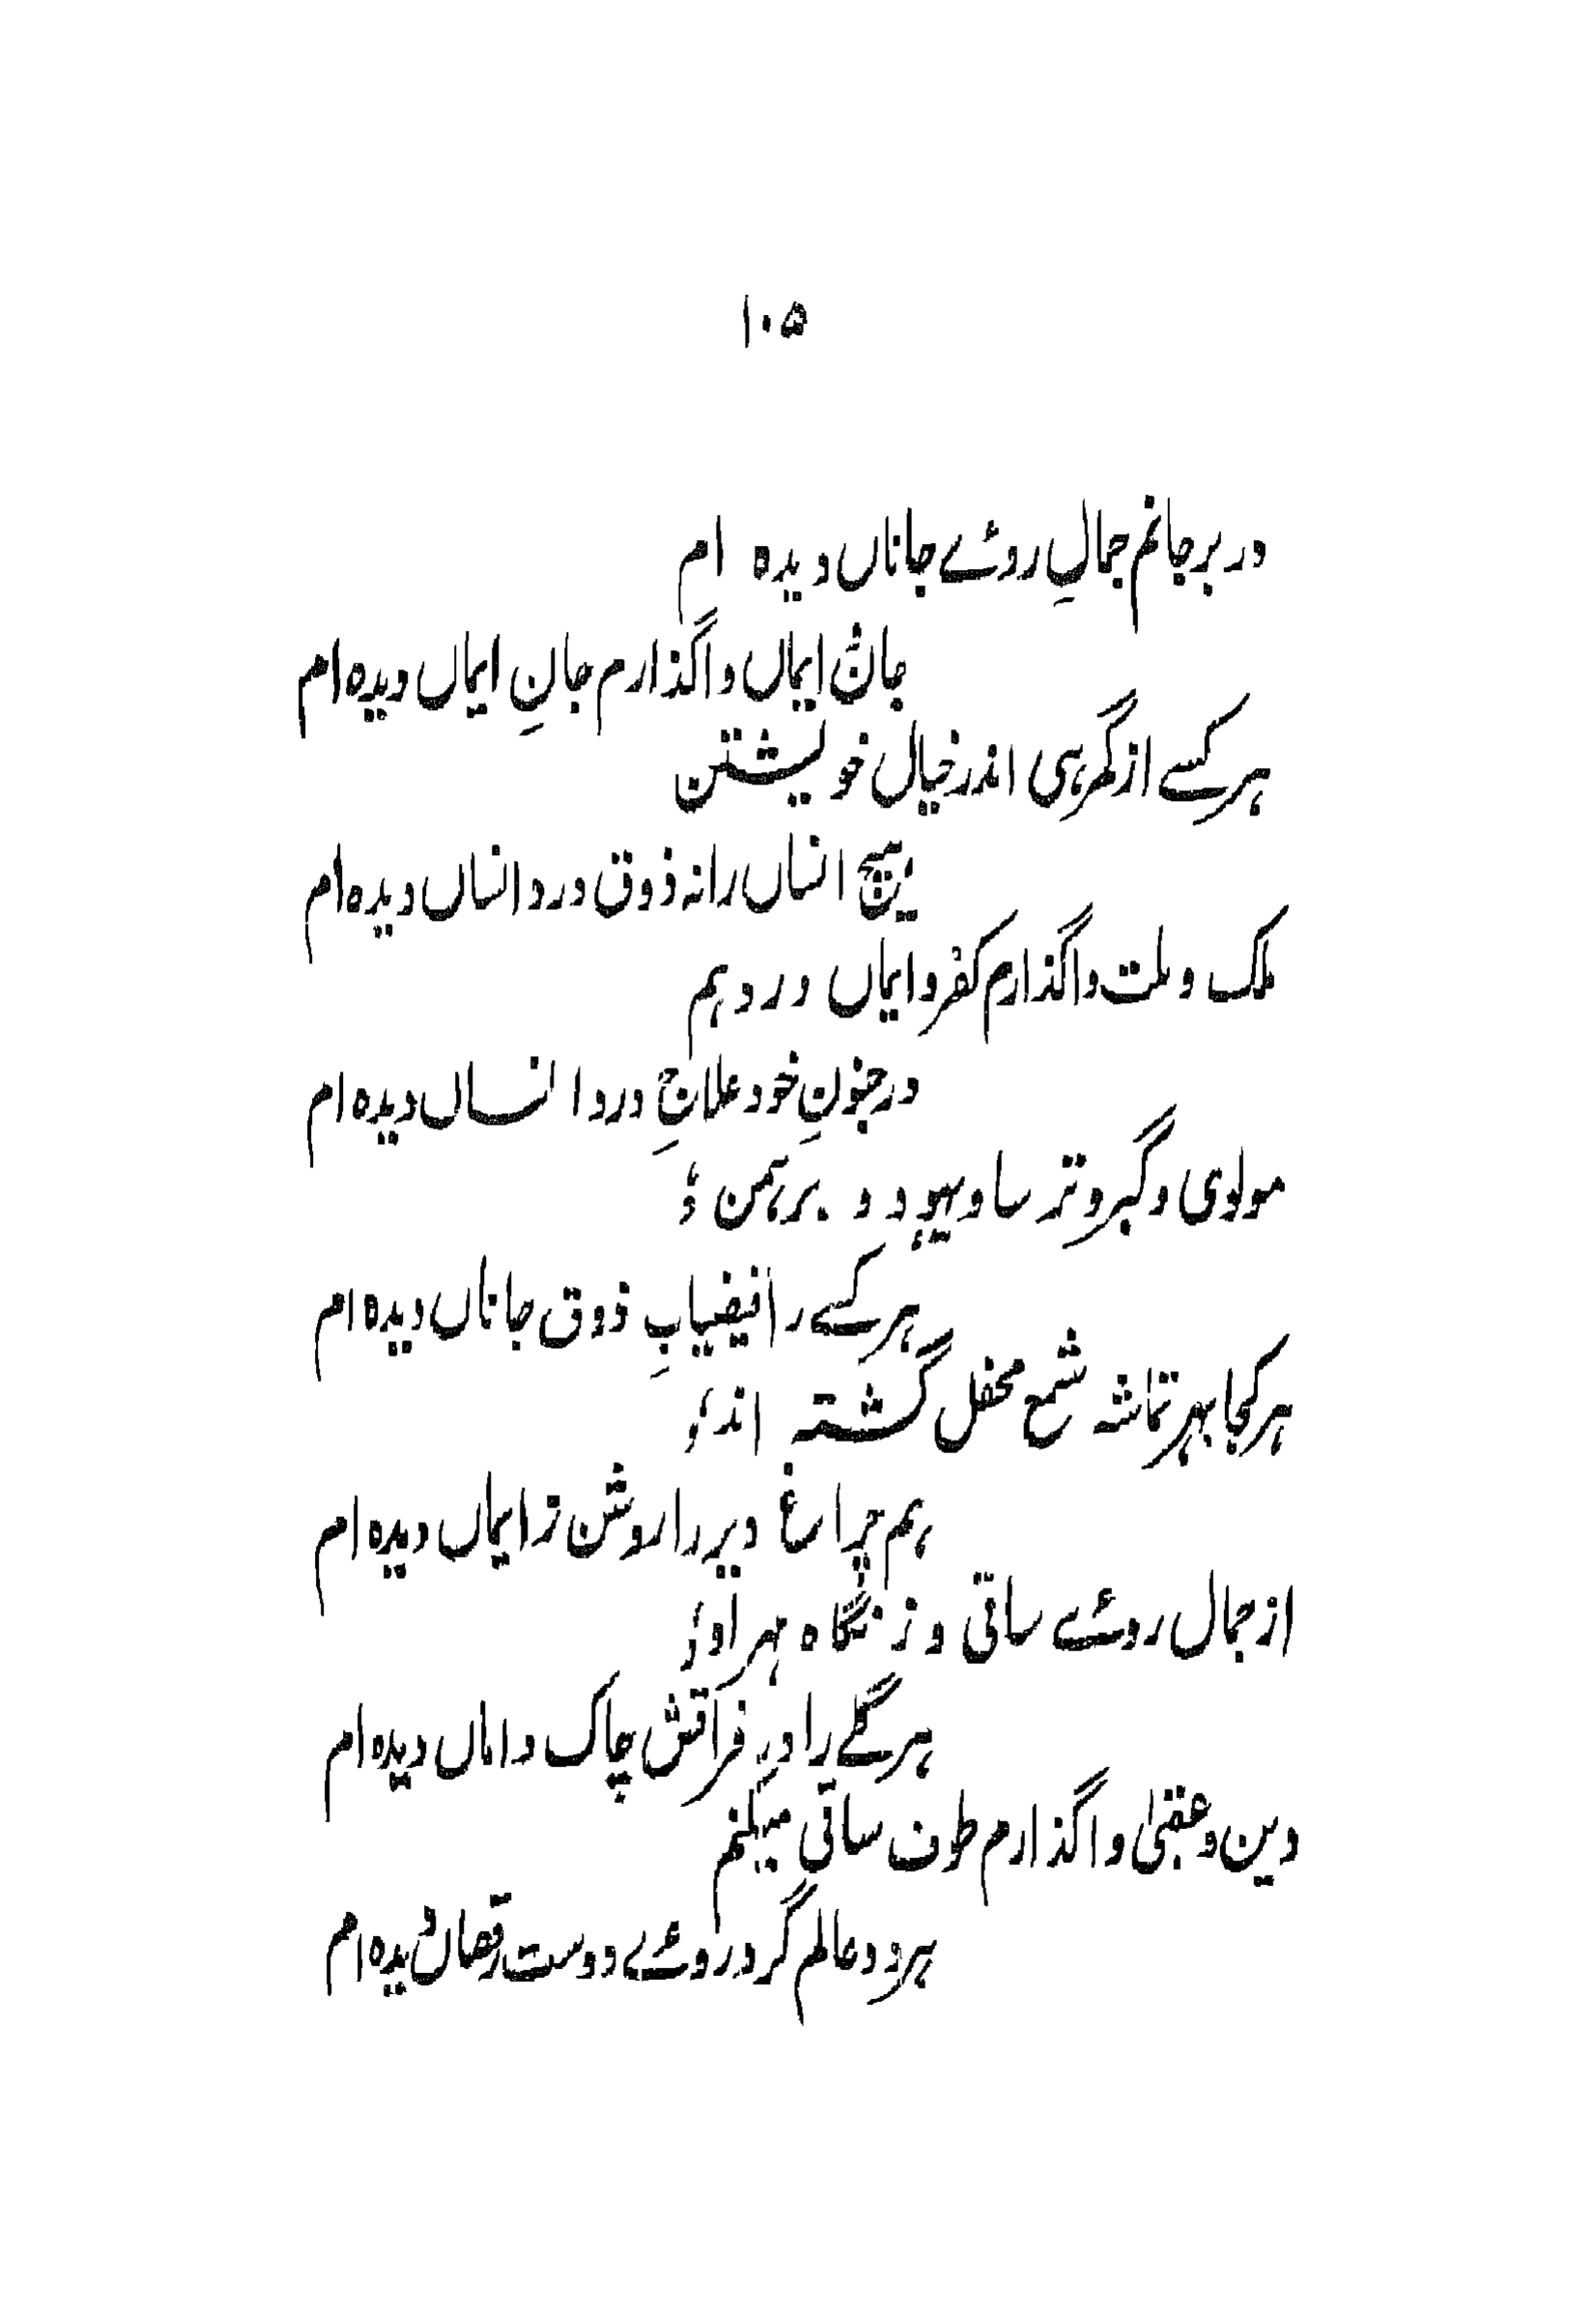 ۱۰۵
در بر جانم جمالِ روئے جاناں دیدہ ام
جانؐ ایماں واگذارم جانِ ایماں دیدہ ام
ہر کسے از گمرہی اندر خیال خویشتن
ہیچ انساں را نہ ذوق درد انساں دیدہ ام
ملک و ملت واگذارم کفر و ایماں در دہم
در جنونِ خود علاجِ درد انساں دیدہ ام
مولوی و گبر و ترسا و یہود و برہمن ؛
ہر کسے را فیضیابِ ذوق جاناں دیدہ ام
ہر کجا بہر تماشہ شمع محفل گشتہ اند ؛
ہم چراغ دیر را روشن ز ایماں دیدہ ام
از جمال روئے ساقی و ز نگاہ مہر او ؛
ہر گلے را در فراقش چاک داماں دیدہ ام
دین و عقبیٰ واگذارم طوف ساقی میکنم
ہر دو عالم گرد روئے دوست رقصاں دیدہ ام